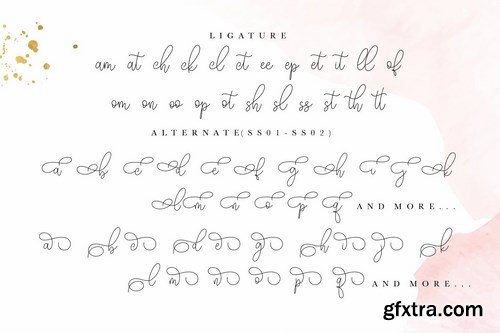 LIGATURE
am at ch ck cl ct ee ep et it ll of
om on oo op ot sh sl ss st th tt
ALTERNATE(SS01-SS02)
a b c d e f g h i j k
l m n o p q AND MORE...
a b c d g h j k
l m n o p q AND MORE...
gfxtra.com